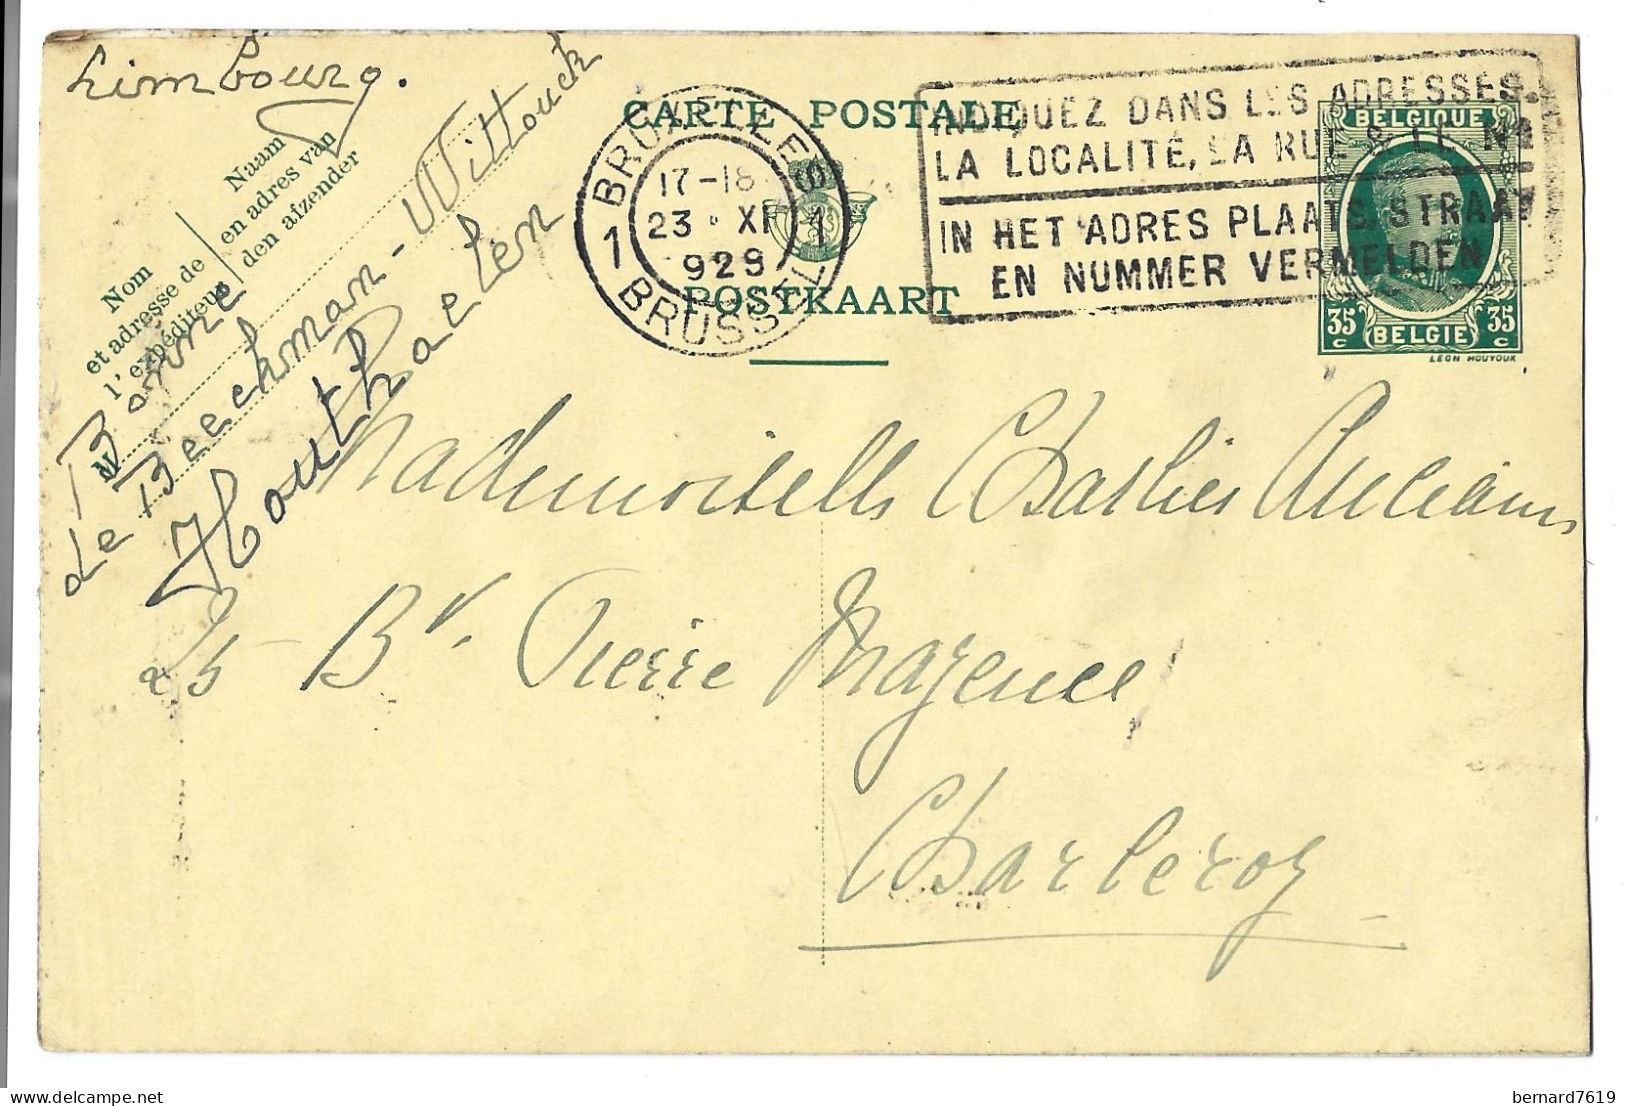 Limbourg.
CARTE POSTALE
POSTKAART
Nom
et adresse de
l'expéditeur
Naam
en adres van
den afzender
de Beeckman-Wittouck
Houthaelen
BRUXELLES
1 1
17-18
23 · XI
929
BRUSSEL
INDIQUEZ DANS LES ADRESSES
LA LOCALITÉ, LA RUE & LE No
IN HET ADRES PLAATS, STRAAT
EN NUMMER VERMELDEN
BELGIQUE
35 c BELGIE 35 c
LEON HOUYOUX
Mademoiselle Charlier
25 - Bd. Pierre Mayence
Charleroy
bernard7619